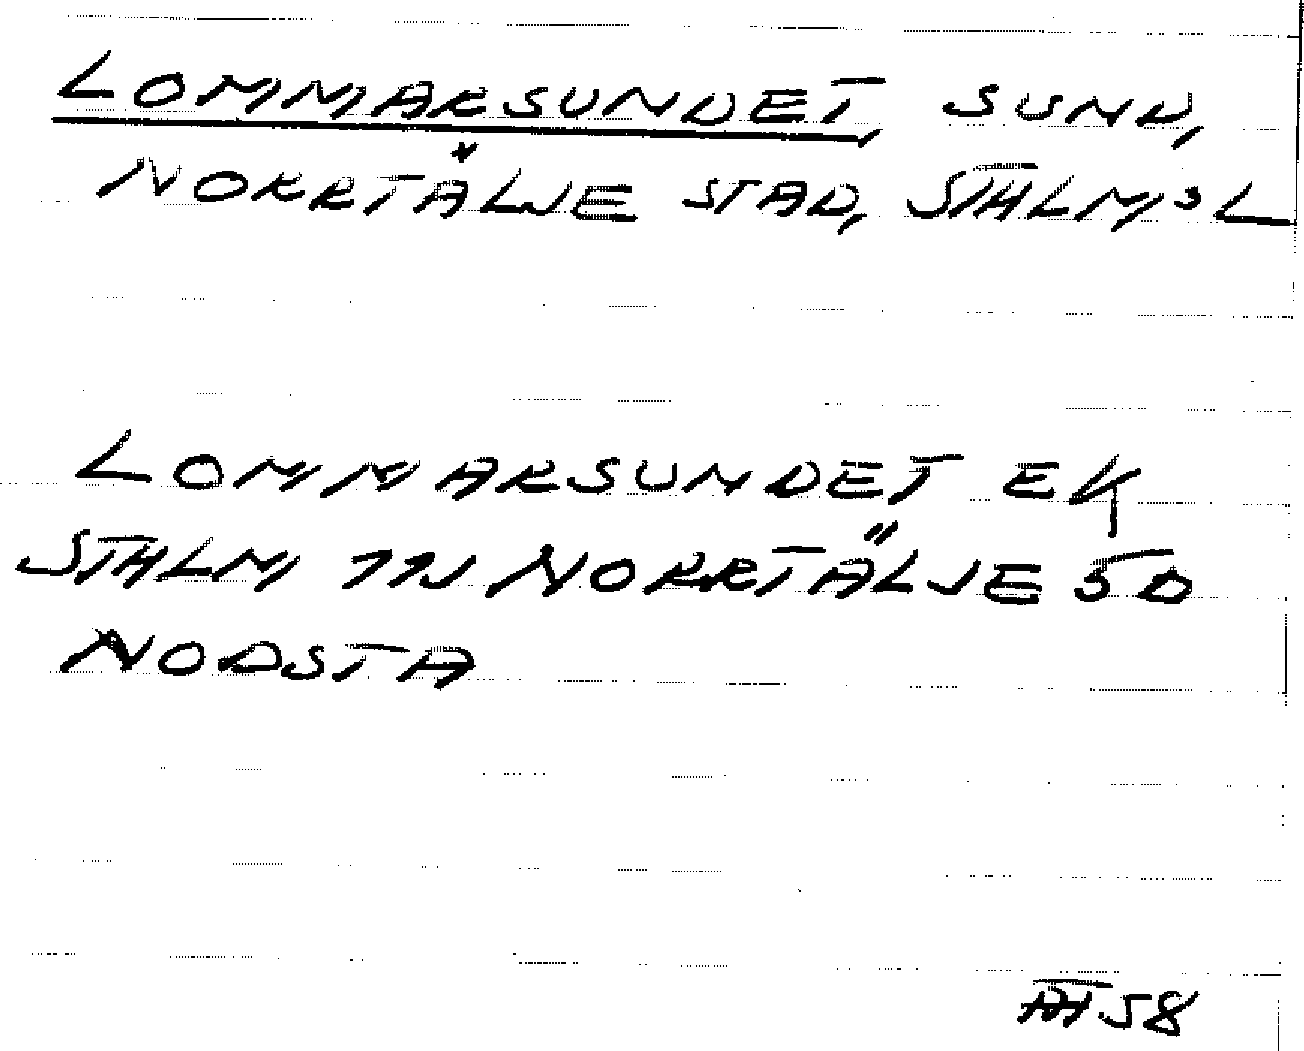 LOMMARSUNDET, SUND,
NORRTÄLJE STAD, STHLMS L
LOMMARSUNDET EK
STHLM 11J NORRTÄLJE SO
NODSTA
58